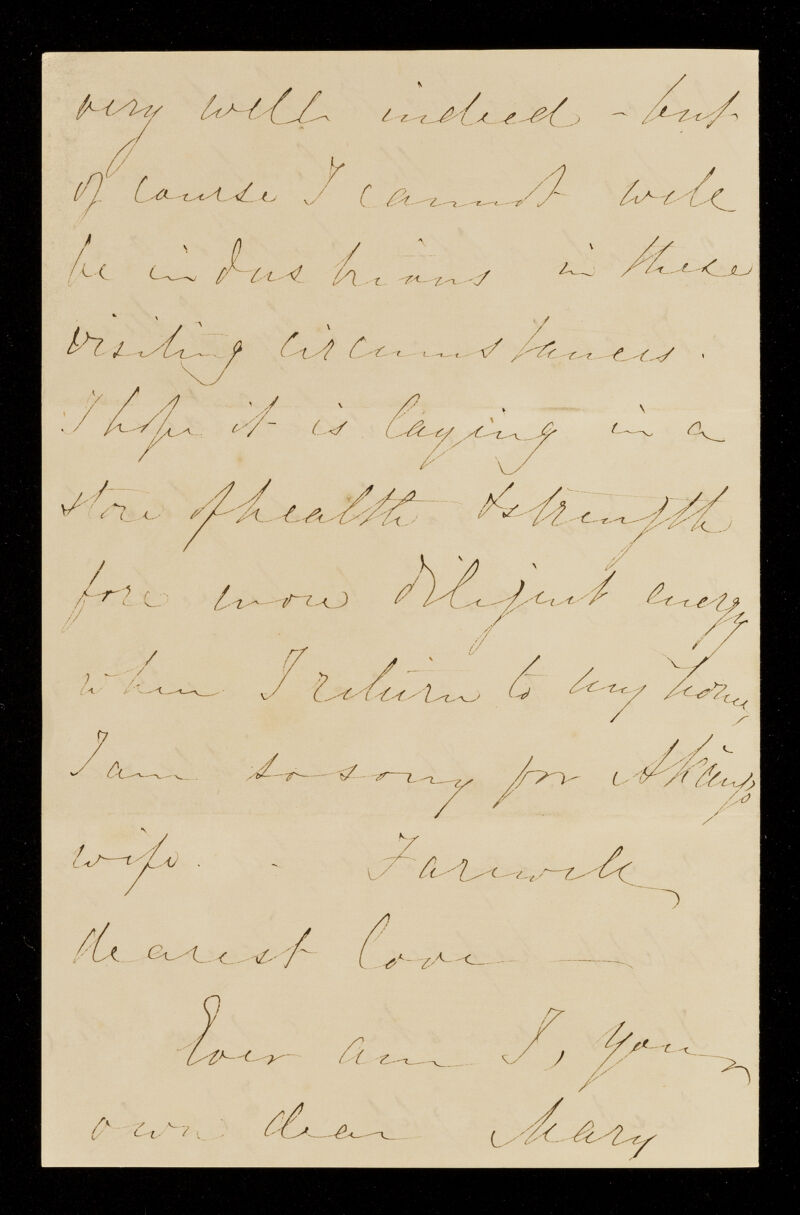 very well indeed - but
of course I cannot well
be industrious in these
visiting circumstances.
I hope it is laying in a
store of health & strength
fore more diligent energy
when I return to my home,
I am so sorry for
wife. - Farewell
dearest love —
Ever am I, your
own dear Mary